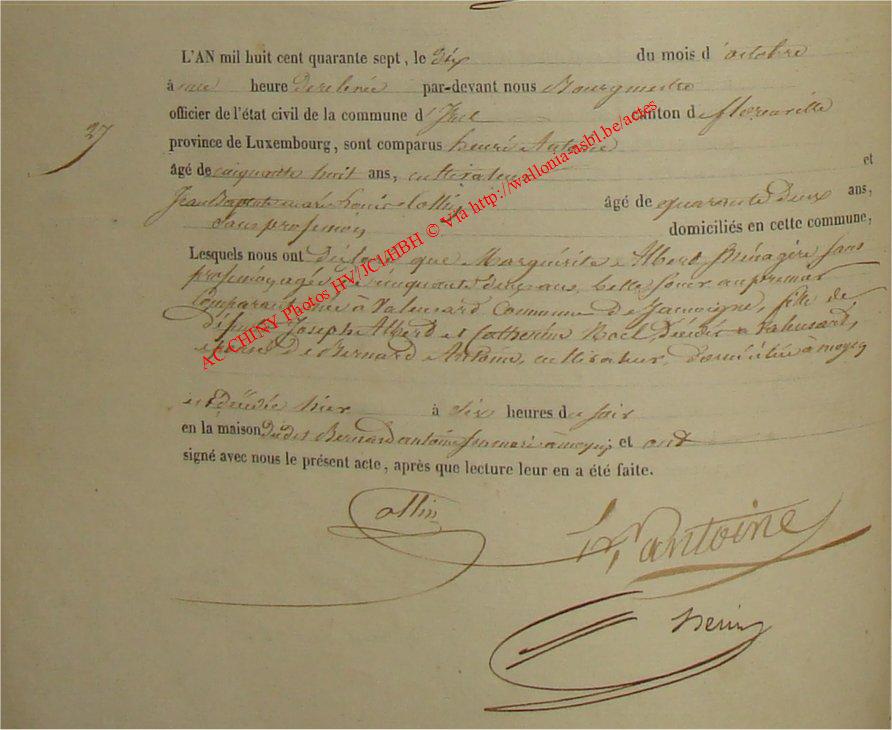 L'AN mil huit cent quarante sept, le dix du mois d'octobre
à une heure de relevée par-devant nous Bourgmestre
officier de l'état civil de la commune d' canton de florenville
27
province de Luxembourg, sont comparus henri Antoine
âgé de cinquante huit ans, cultivateur et
Jean Baptiste marie Louis Collin âgé de quarante deux ans,
sans profession domiciliés en cette commune,
Lesquels nous ont déclaré que Marguerite Alberd, Ménagère sans
profession, agée de cinquante deux ans, belle soeur au premier
Comparant née à Valensard Commune de Jamoigne, fille de
défunts Joseph Alberd et Catherine Noel, Décédés à Valensard,
épouse de Bernard Antoine, cultivateur, domiciliée à moyen
est Décédée hier à dix heures du soir
en la maison dudit Bernard antoine son mari à moyen; et ont
signé avec nous le présent acte, après que lecture leur en a été faite.
Collin
h antoine
AC-CHINY Photos HV/JCI/HBH © Via http://wallonia-asbl.be/actes